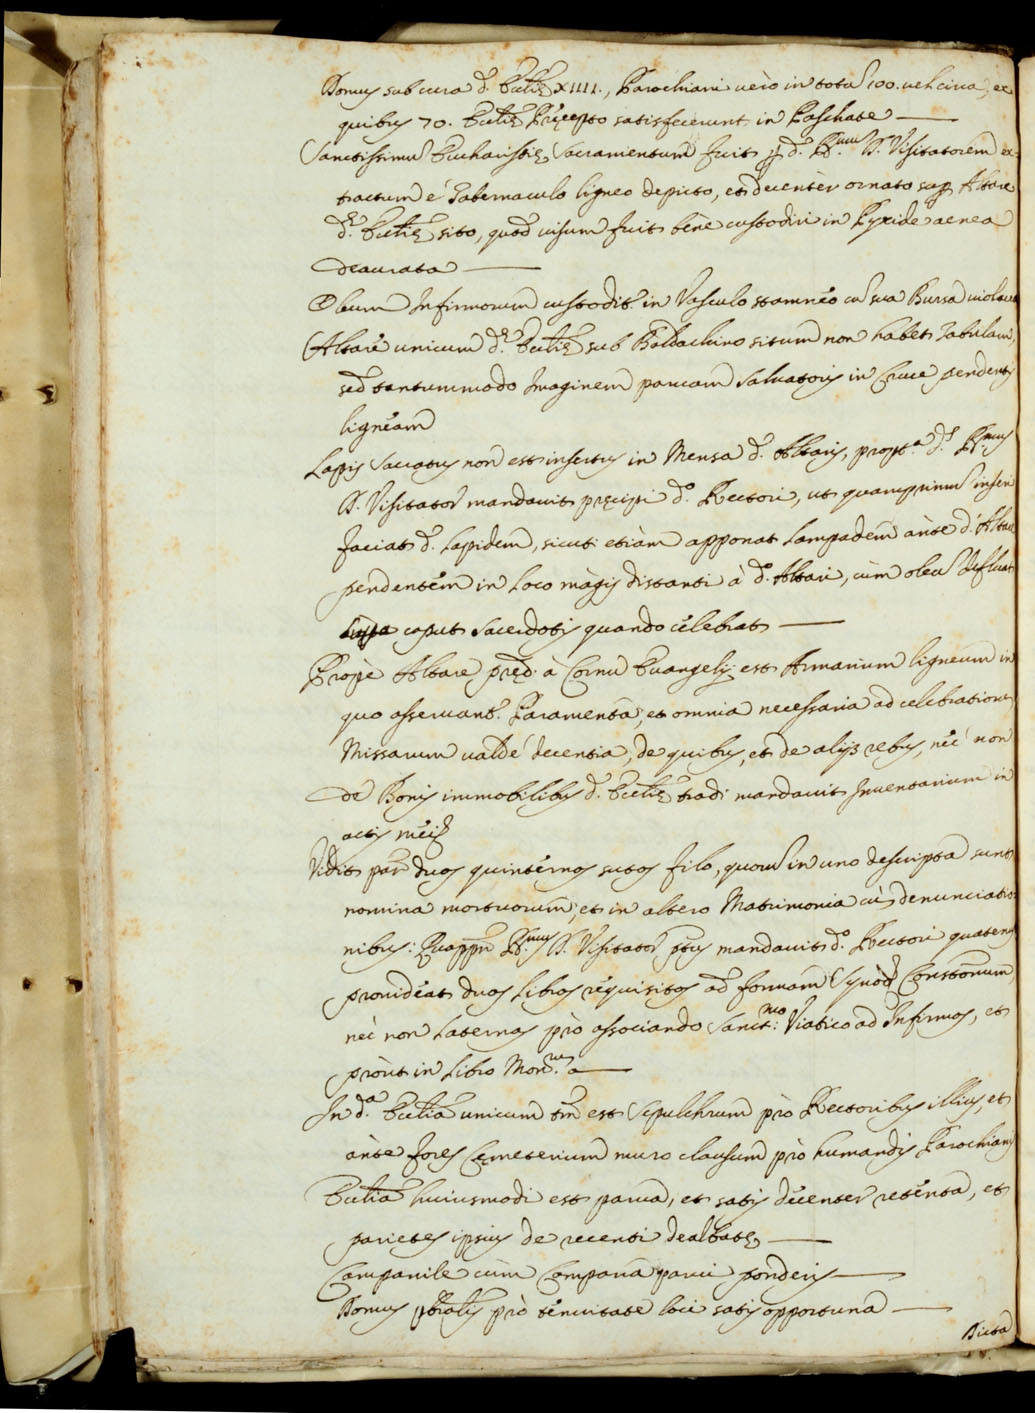 Domus sub cura d. Ecclię XIIII., Parochiani verò in totũ 100. vel circa, ex
quibus 70. Ecclię Pręcepto satisfecerunt in Paschate
Sanctissimũ Eucharistię Sacramentum fuit p d. Rmum D. Visitatorem ex-
tractum è Tabernaculo ligneo depicto, et decentèr ornato sup Altare
dę Ecclię sito, quod visum fuit benè custodiri in Pyxide aenea
deaurata
Oleum Infirmorum custodit. in Vasculo stamnèo cũ sua Bursa violacea
Altare unicum dę Ecclię sub Baldachino situm non habet Tabulam,
sed tantummodo Imaginem parvam Salvatoris in Cruce pendentis
lignèam
Lapis Sacratus non est insertus in Mensa d. Altaris, propta. ds Rmus
D. Visitator mandavit pręcipi do Rectori, ut quamprimũ inseri
faciat d. Lapidem, sicuti etiàm apponat Lampadem ànte d. Altare
pendentèm in loco màgis distanti à do Altari, cùm oleũ defluat
supra caput Sacerdotis quando cèlebrat
Propè Altare pręd. à Cornu Evangelij est Armarium ligneum in
quo asservant. Paramenta, et omnia necessaria ad celebrationem
Missarum valdè decentia, de quibus, et de alijs rebus, nèc non
de Bonis immobilibus d. Ecclię tradi mandavit Inventarium in
actis mèis
Vidit par duos quintèrnos sutos filo, quorũ in uno descripta sunt
nomina mortuorum, et in altero Matrimonia cũ denunciatio-
nibus: Quapp Rmus D. Visitator ptus mandavit do Rectori quatenus
providèat duos Libros rèquisitos ad formam Synod Constonum,
nèc non Laternas prò associando Sanctmo: Viatico ad Infirmos, et
pròut in Libro
In da Ecclia unicum tm est Sepulchrum prò Rectoribus illius, et
ànte fores Cęmeterium muro clausum prò humandis Parochianis
Ecclia huiusmodi est parva, et satis dècenter retènta, et
parietes ipsius de recenti dealbatę
Campanile cùm Campana parvi ponderis
Domus prò tènuitate loci satis opportuna
Dicta